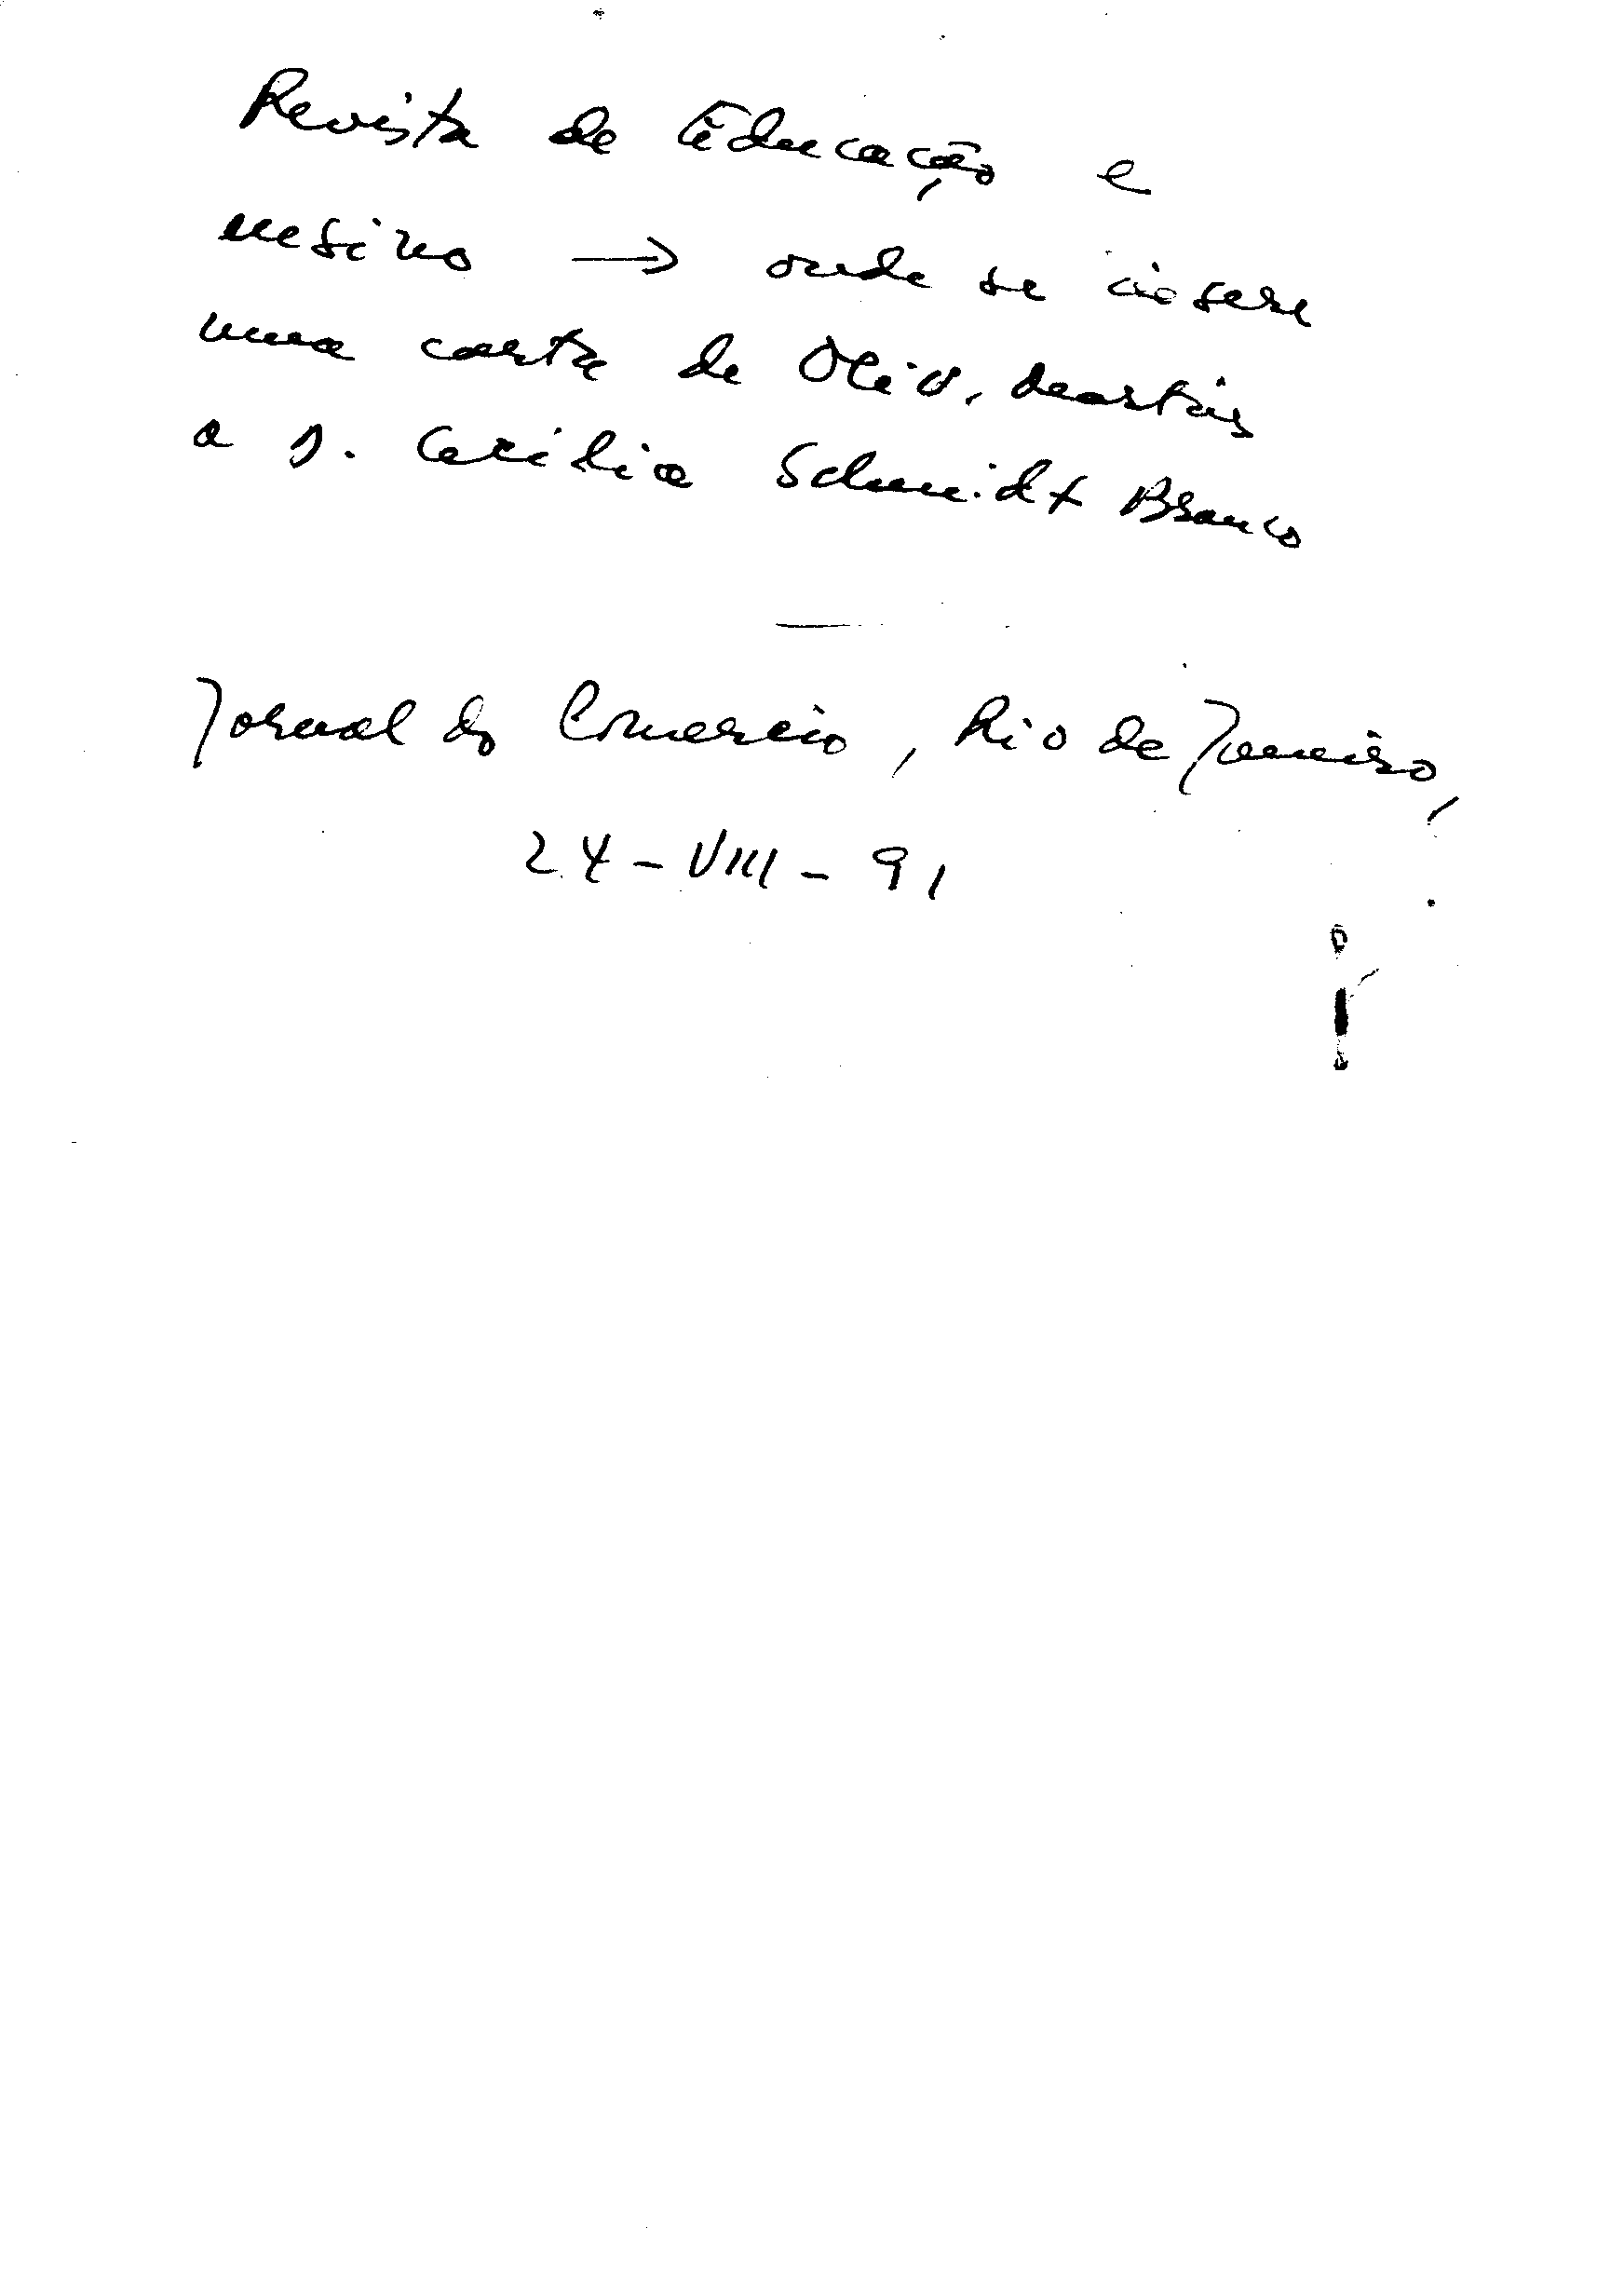 Revista de Educação e
ensino → onde se insere
uma carta de Oliv.
a D. Cecilia Schmidt Branco
Jornal do Comercio, Rio de Janeiro,
24-VIII-91